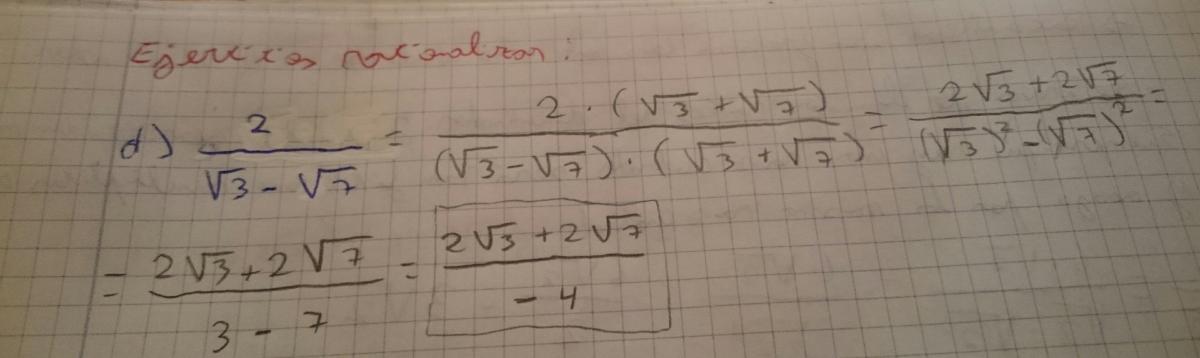 Ejercicios racionalizar:
d) 2/(√3 - √7) = 2 · (√3 + √7)/((√3 - √7) · (√3 + √7)) = (2√3 + 2√7)/((√3)² - (√7)²) =
= (2√3 + 2√7)/(3 - 7) = (2√3 + 2√7)/(-4)